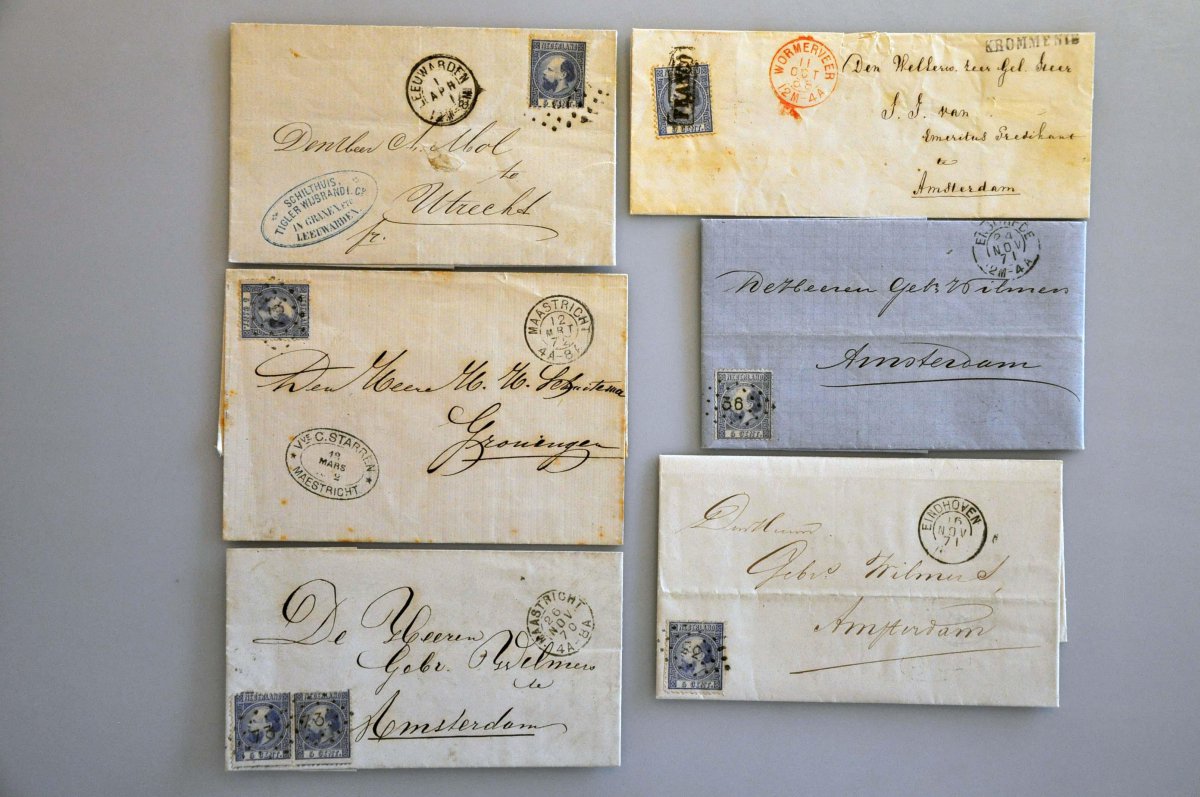 LEEUWARDEN
1
APR
12M-8M
NEDERLAND
5 CENT.
Den Heer A. Mol
te
Utrecht
fr.
SCHILTHUIS,
TIGLER WIJBRANDI. Co
IN GRANEN, ETC
LEEUWARDEN.
FRANCO
5 CENT.
WORMERVEER
11
OCT
68
12M-4A
KROMMENIE
Den Wellerw. zeer Gel. Heer
S. I. van
Emeritus Predikant
te
Amsterdam
NEDERLAND
5 CENT.
MAASTRICHT
12
MRT
72
4A-8A
Den Heere H. H.
Groningen
Vve C. STARREN
12
MARS
MAESTRICHT
24
NOV
71
12M-4A
De Heeren Gebr Wilmers
Amsterdam
NEDERLAND
36
5 CENT.
MAASTRICHT
26
NOV
70
4A-8A
De Heeren
Gebr. Wilmers
te
Amsterdam
NEDERLAND
73
5 CENT.
NEDERLAND
73
5 CENT.
EINDHOVEN
16
NOV
71
Den Heeren
Gebrs Wilmers
Amsterdam
NEDERLAND
5 CENT.